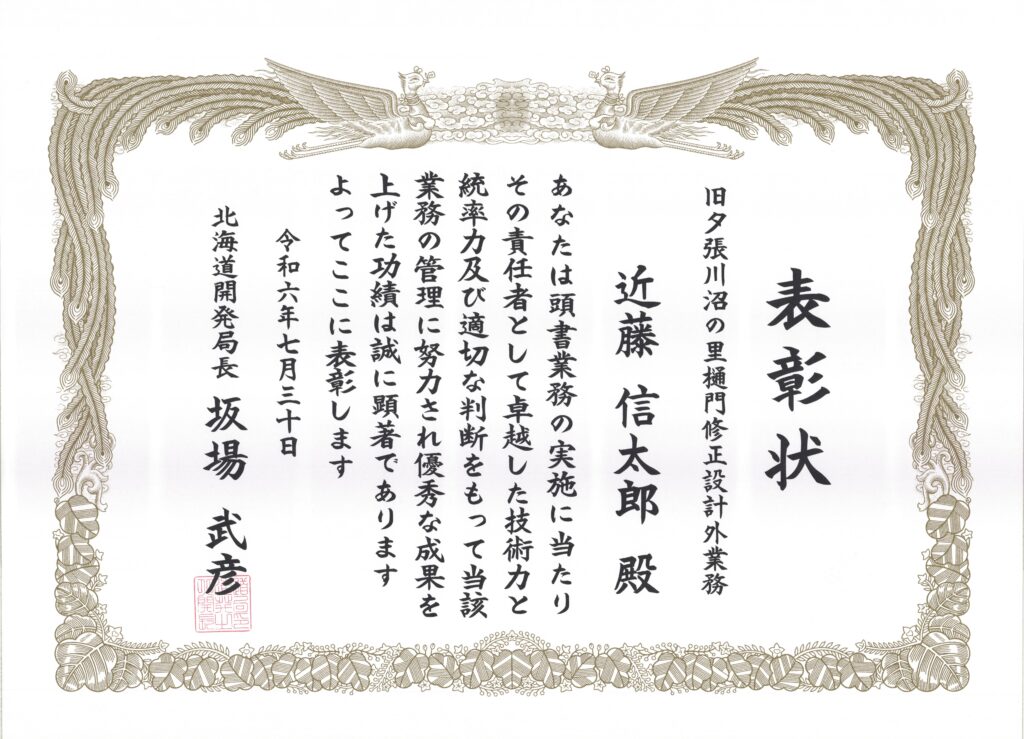 表彰状
旧夕張川沼の里樋門修正設計外業務
近藤 信太郎 殿
あなたは頭書業務の実施に当たり
その責任者として卓越した技術力と
統率力及び適切な判断をもって当該
業務の管理に努力され優秀な成果を
上げた功績は誠に顕著であります
よってここに表彰します
令和六年七月三十日
北海道開発局長 坂場 武彦